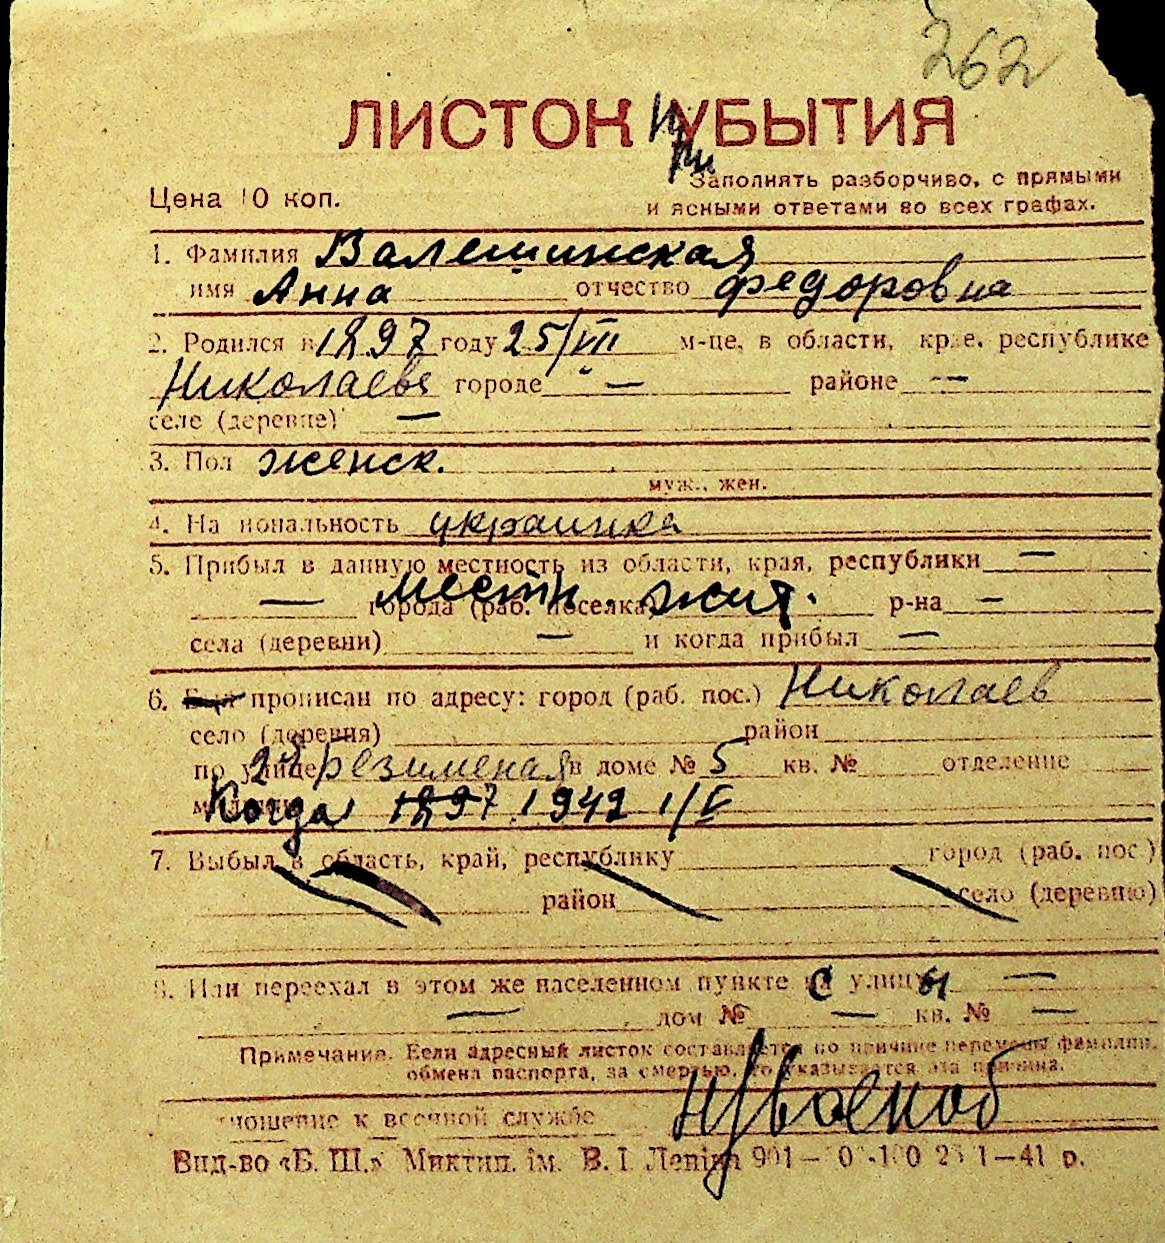 262
ЛИСТОК При УБЫТИЯ
Цена 10 коп.
Заполнять разборчиво, с прямыми
и ясными ответами во всех графах.
1. Фамилия Валешинская
имя Анна отчество Федоровна
2. Родился в 1897 году 25/VII м-це, в области, крае, республике
Николаеве городе — районе —
селе (деревне) —
3. Пол женск.
муж., жен.
4. Национальность украинка
5. Прибыл в данную местность из области, края, республики —
— города (раб. поселка) местн. жит. р-на —
села (деревни) — и когда прибыл —
6. Был прописан по адресу: город (раб. пос.) Николаев
село (деревня) район
по улице 2я Безименая в доме № 5 кв. № отделение
милиции Когда 1897 1942 1/V
7. Выбыл в область, край, республику город (раб. пос.)
район село (деревню)
8. Или переехал в этом же населенном пункте с улицы —
— дом № — кв. № —
Примечание. Если адресный листок составляется по причине перемены фамилии,
обмена паспорта, за смертью, то указывается эта причина.
Отношение к военной службе
Вид-во «Б. Ш.» Миктип. ім. В. І. Леніна